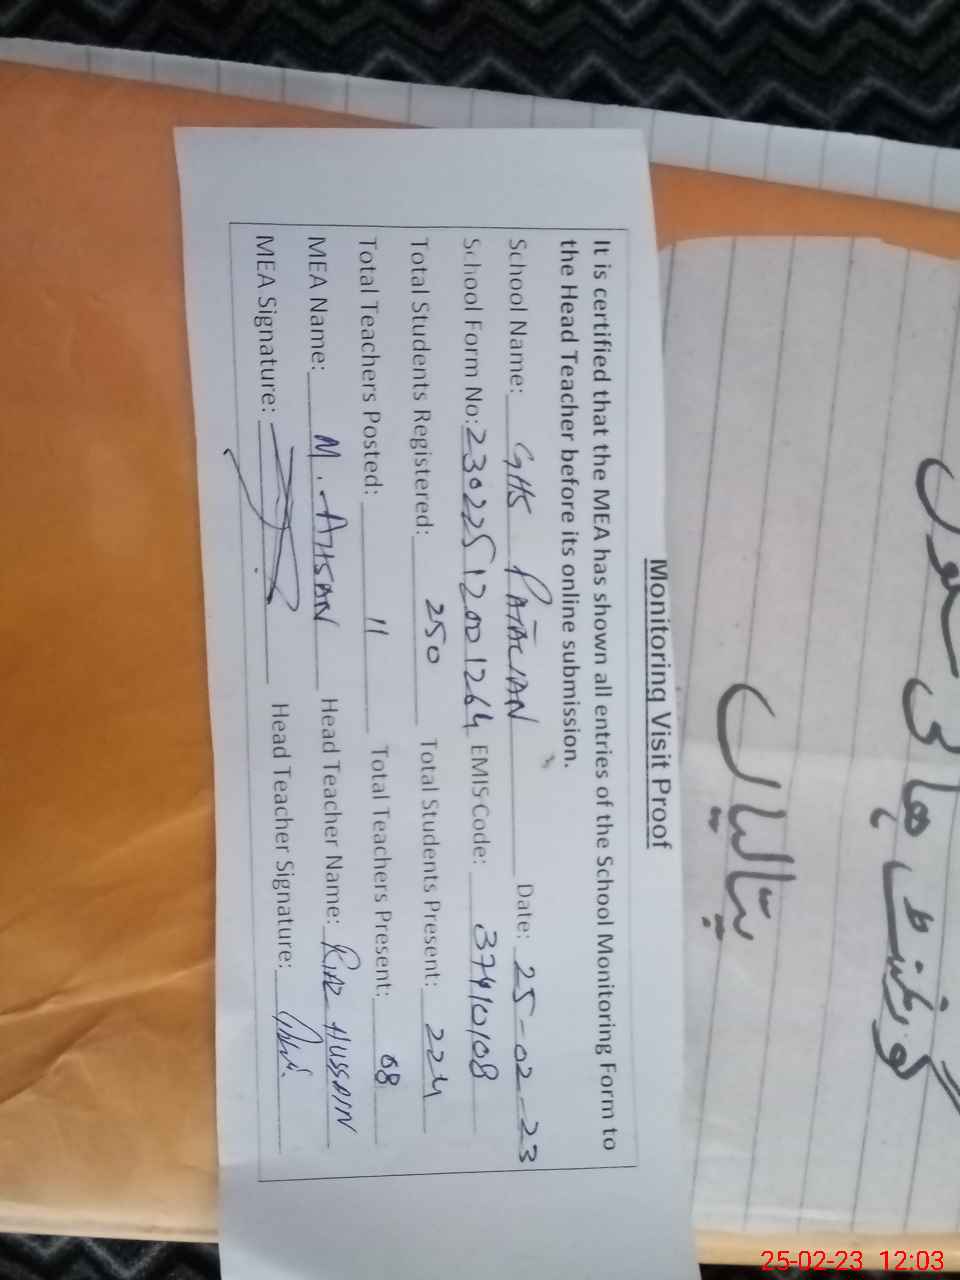 Monitoring Visit Proof
It is certified that the MEA has shown all entries of the School Monitoring Form to
the Head Teacher before its online submission.
School Name: GHS PATALIAN Date: 25-02-23
School Form No: 23022512001264 EMIS Code: 37410108
Total Students Registered: 250 Total Students Present: 224
Total Teachers Posted: 11 Total Teachers Present: 08
MEA Name: M. AHSAN Head Teacher Name: RIAZ HUSSAIN
MEA Signature: Head Teacher Signature:
گورنمنٹ ہائی سکول
پتالیاں
25-02-23 12:03